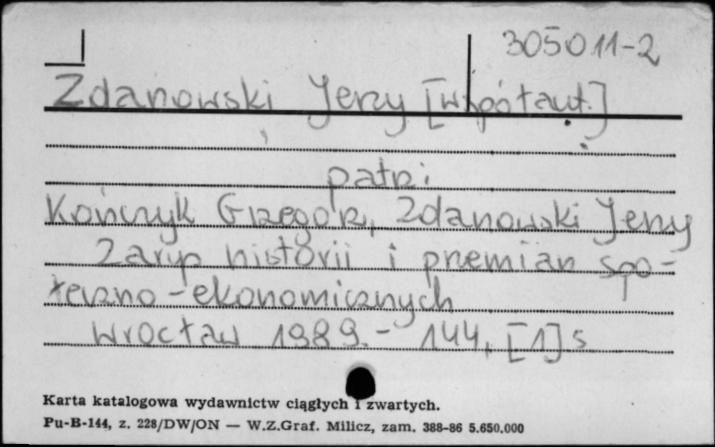 305011-2
Zdanowski Jerzy [współaut.]
patrz:
Kończyk Grzegorz, Zdanowski Jerzy
Zarys historii i przemian spo-
łeczno-ekonomicznych
Wrocław 1989.- 144, [1] s
Karta katalogowa wydawnictw ciągłych i zwartych.
Pu-B-144, z. 228/DW/ON — W.Z.Graf. Milicz, zam. 388-86 5.650.000